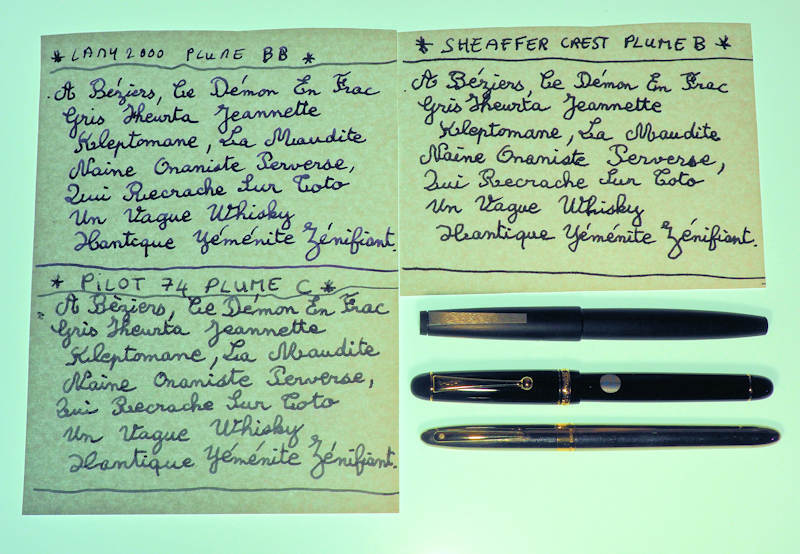 * LAMY 2000 PLUME BB *
A Béziers, Ce Démon En Frac
Gris Heurta Jeannette
Kleptomane, La Maudite
Naine Onaniste Perverse,
Qui Recrache Sur Toto
Un Vague Whisky
Xantique Yéménite Zénifiant.
* PILOT 74 PLUME C *
A Bèziers, Ce Démon En Frac
Gris Heurta Jeannette
Kleptomane, La Maudite
Naine Onaniste Perverse,
Qui Recrache Sur Toto
Un Vague Whisky
Xantique Yéménite Zénifiant.
* SHEAFFER CREST PLUME B *
A Béziers, Ce Démon En Frac
Gris Heurta Jeannette
Kleptomane, La Maudite
Naine Onaniste Perverse,
Qui Recrache Sur Toto
Un Vague Whisky
Xantique Yéménite Zénifiant.